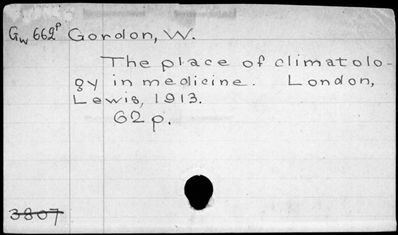 Gw 662P Gordon, W.
The place of climatolo-
gy in medicine. London,
Lewis, 1913.
62 p.
3807